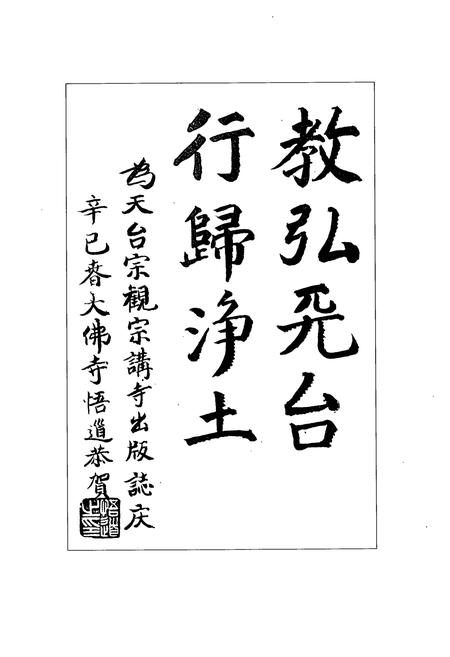 教弘天台
行歸淨土
為天台宗觀宗講寺出版誌庆
辛巳春大佛寺悟道恭賀
悟道之印